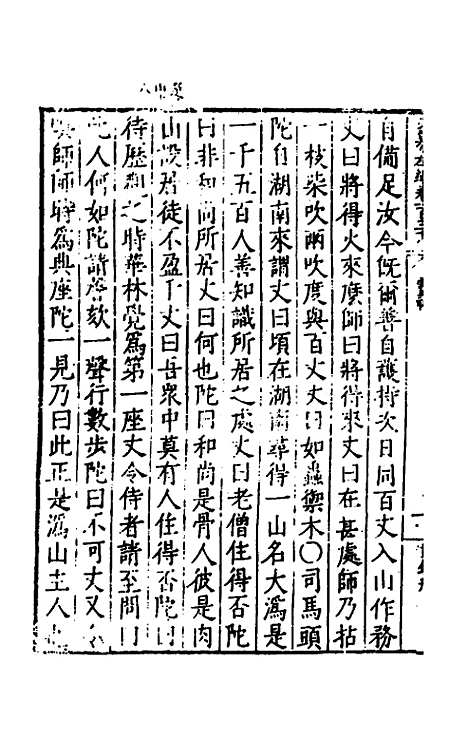 自備足汝今既爾善自護持次日同百丈入山作務
丈曰將得火來麼師曰將得來丈曰在甚處師乃拈
一枝柴吹兩吹度與百丈丈曰如蟲禦木○司馬頭
陀自湖南來謂丈曰頃在湖南尋得一山名大溈是
一千五百人善知識所居之處丈曰老僧住得否陀
曰非和尚所居丈曰何也陀曰和尚是骨人彼是肉
山設居徒不盈千丈曰吾衆中莫有人住得否陀曰
待歷觀之時華林覺爲第一座丈令侍者請至問曰
此人何如陀請謦欬一聲行數步陀曰不可丈又令
喚師師時爲典座陀一見乃曰此正是溈山主人